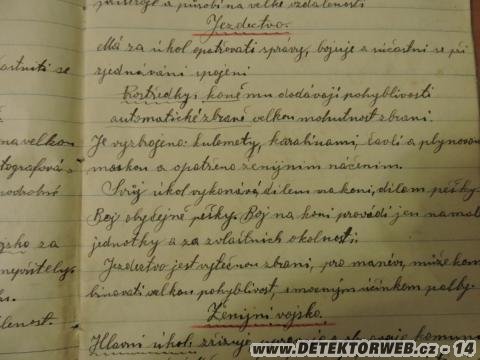 přístroje a působí na velké vzdálenosti
Jezdectvo.
Má za úkol opatřovati zprávy, bojuje a účastní se při
zjednávání spojení
Prostředky: koně mu dodávají pohyblivosti
automatické zbraně velkou mohutnost zbraní.
Je vyzbrojeno: kulomety, karabinami, šavlí a plynovou
maskou a opatřeno ženijním náčením.
Svůj úkol vykonává dílem na koni, dílem pěšky.
Boj obyčejně pěšky. Boj na koni provádí jen na malé
jednotky a za zvláštních okolností.
Jezdectvo jest výtečnou zbraní, pro manévr, může kom
binovati velkou pohyblivost, s mocným účinkem palby.
Ženijní vojsko.
Hlavní úkol: zřizuje
astniti se
na velkou
tografová
podrobné
ojsko za
nepřítelys
lenost.
© WWW.DETEKTORWEB.CZ - 14